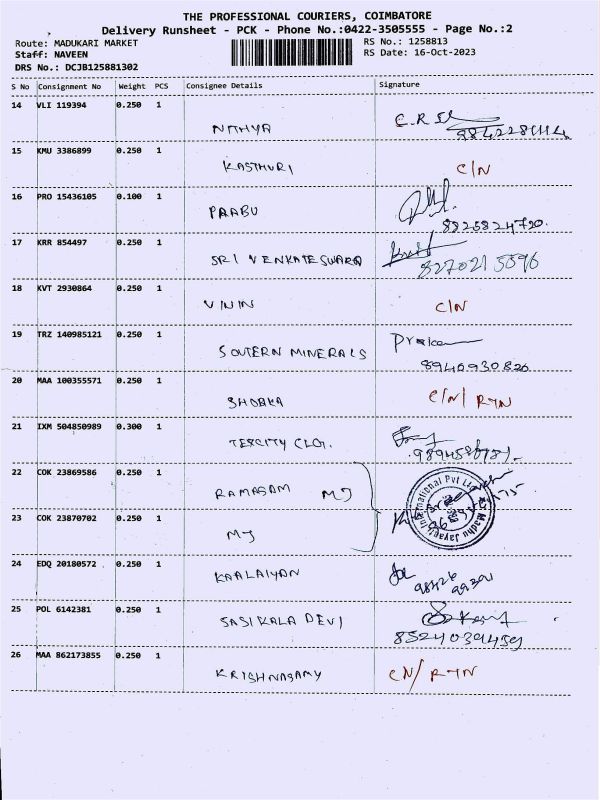 THE PROFESSIONAL COURIERS, COIMBATORE
Delivery Runsheet - PCK - Phone No.:0422-3505555 - Page No.:2
Route: MADUKARI MARKET RS No.: 1258813
Staff: NAVEEN RS Date: 16-Oct-2023
DRS No.: DCJB125881302
S No Consignment No Weight PCS Consignee Details Signature
14 VLI 119394 0.250 1
NITHYA 9842281114
15 KMU 3386899 0.250 1
KASTHURI C/N
16 PRO 15436105 0.100 1
PRABU 8825824720.
17 KRR 854497 0.250 1
SRI VENKATESWARA 8270215596
18 KVT 2930864 0.250 1
VININ C/N
19 TRZ 140985121 0.250 1
SOUTERN MINERALS 8940930820
20 MAA 100355571 0.250 1
SHOBKA C/N/ RTN
21 IXM 504850989 0.300 1
22 COK 23869586 0.250 1
RAMASAM MJ
23 COK 23870702 0.250 1
MJ
Madhu Jayanti International Pvt Ltd
24 EDQ 20180572 0.250 1
KAALAIYAN
25 POL 6142381 0.250 1
SASIKALA DEVI
26 MAA 862173855 0.250 1
KRISHNASAMY CN/ RTN